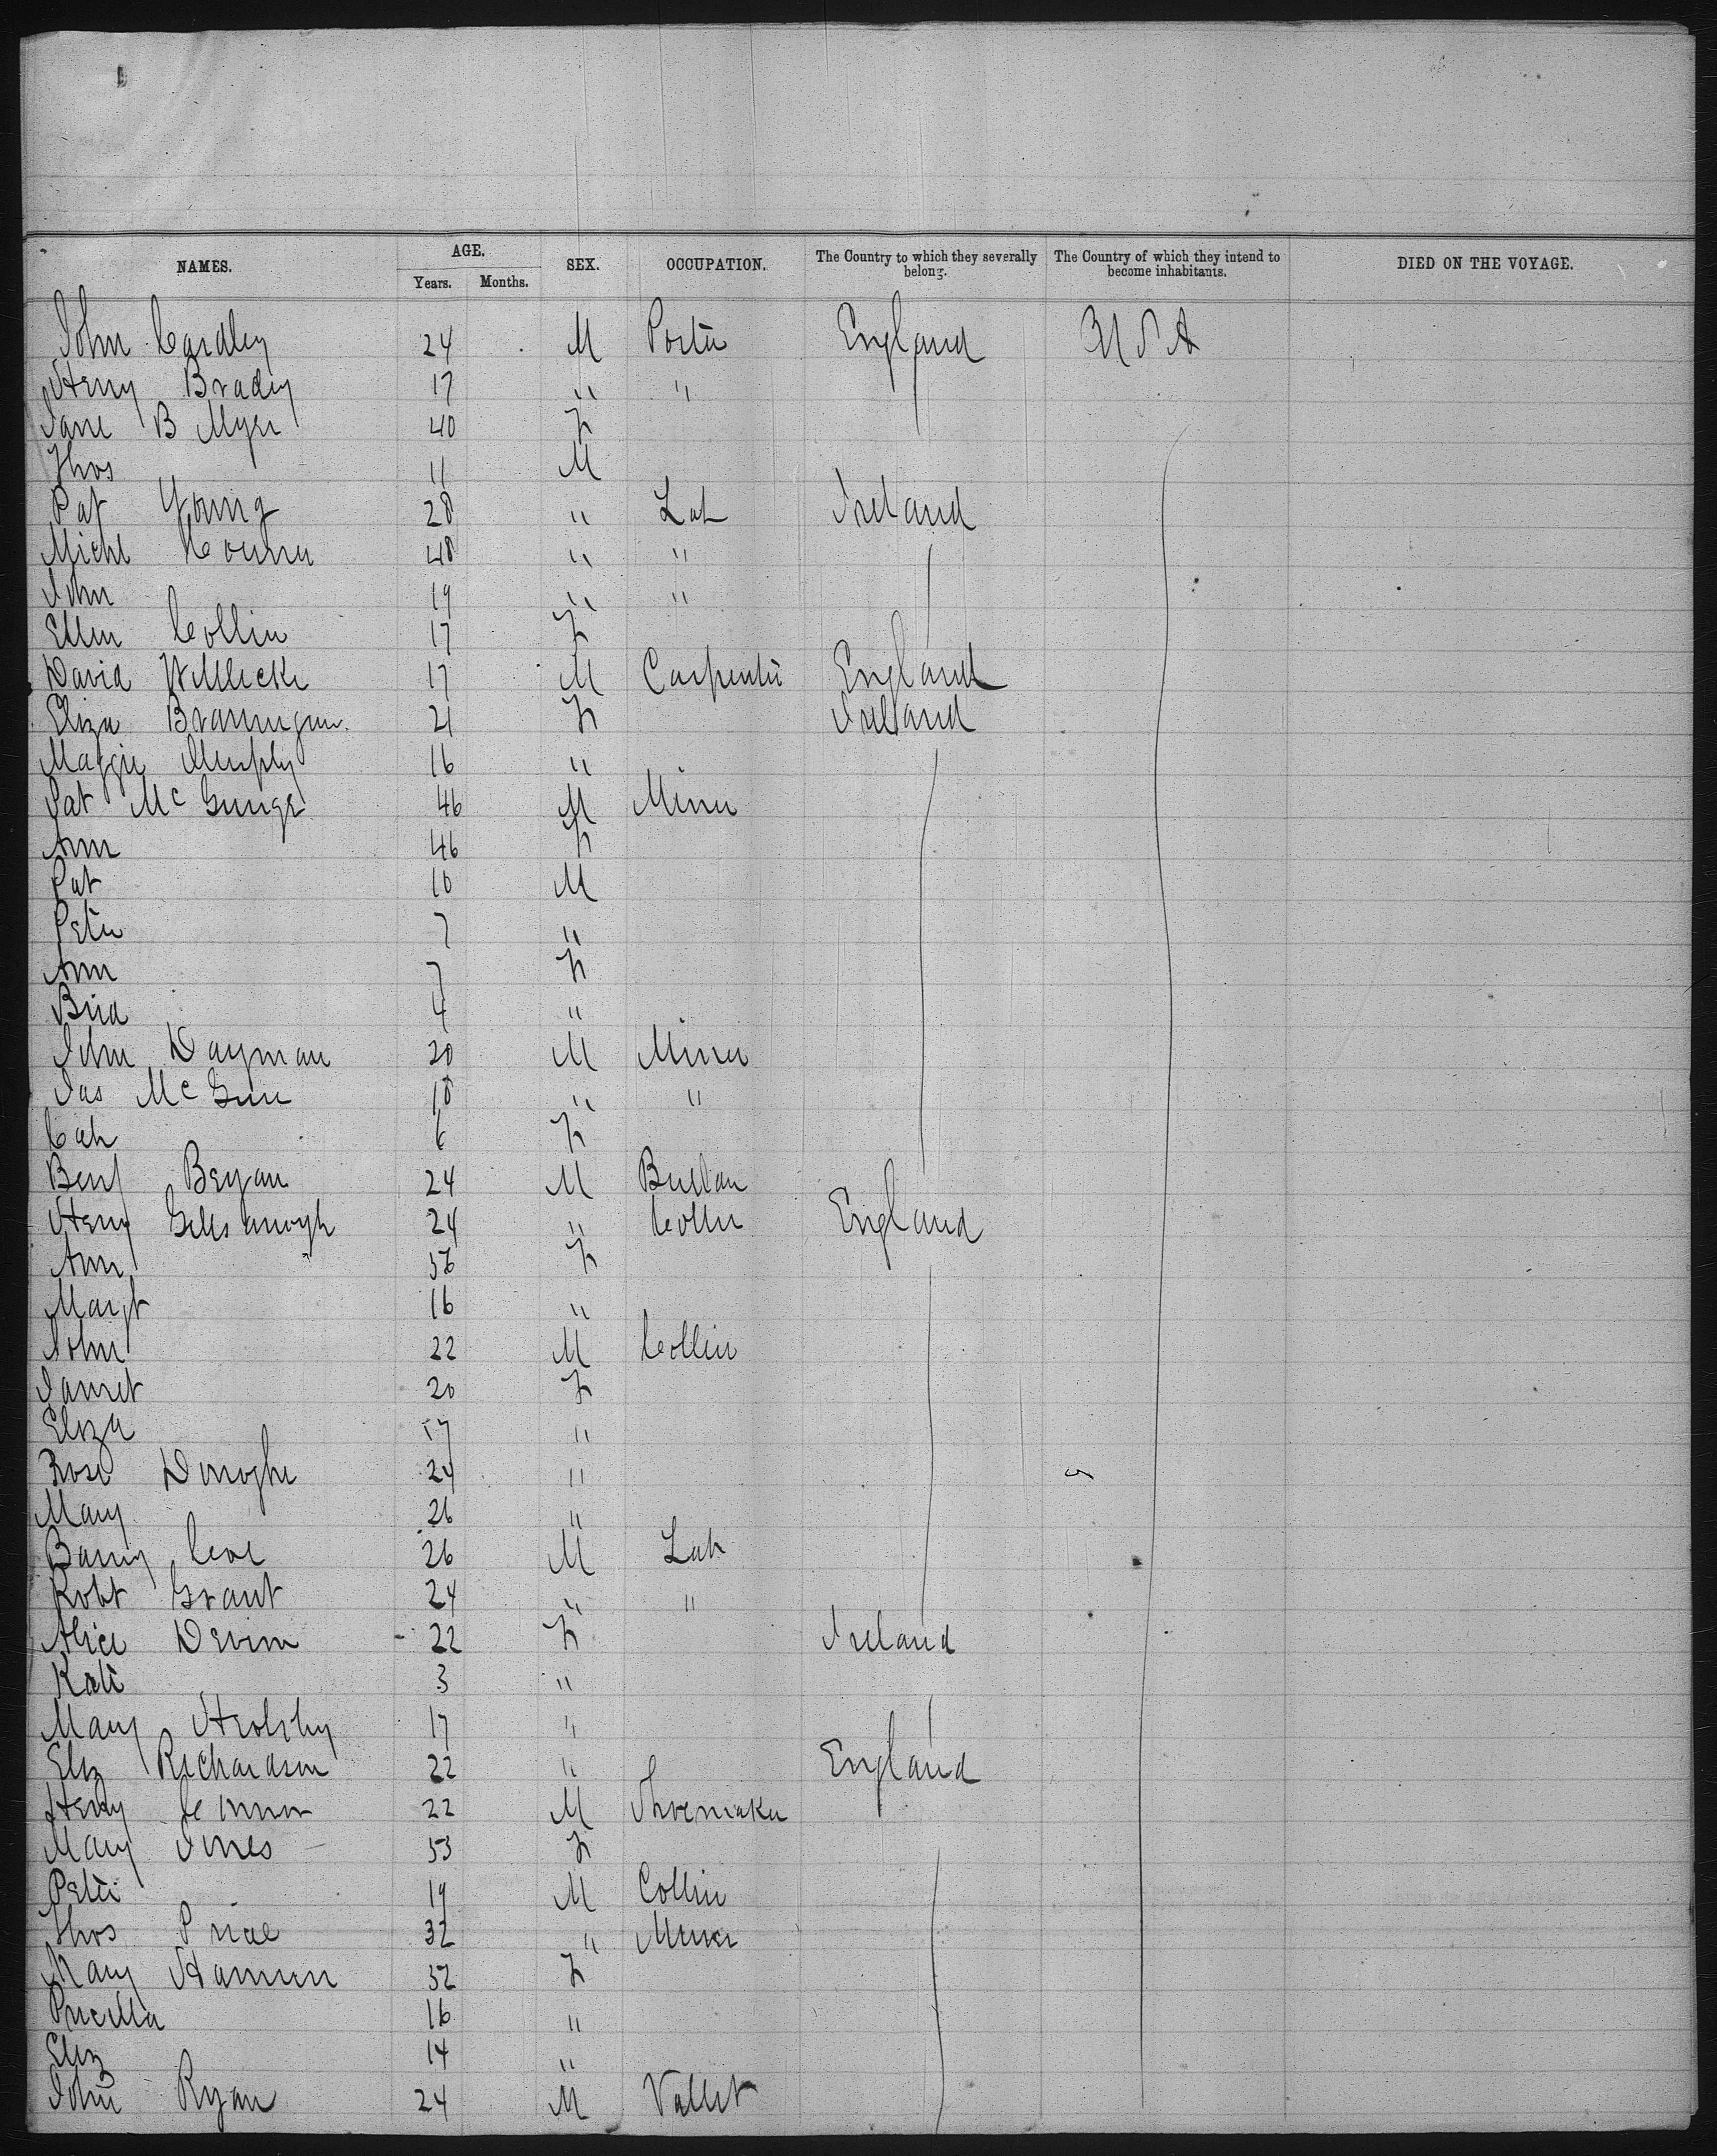 NAMES. AGE. Years. Months. SEX. OCCUPATION. The Country to which they severally belong. The Country of which they intend to become inhabitants. DIED ON THE VOYAGE.
John 24 M Porter England USA
Henry Brady 17 " "
Jane B Myer 40 F
Thos 11 M
Pat Young 28 " Lab Ireland
Michl 48 " "
John 19 " "
Ellen Collin 17 F
David 17 M Carpenter England
Eliza Brannigan 21 F Ireland
Maggie Murphy 16 "
Pat Mc 46 M Miner
Ann 46 F
Pat 10 M
Peter 7 "
Ann 7 F
Brid 4 "
John Dayman 20 M Miner
Jas Mc 18 " "
Cath 6 F
Benj Bryan 24 M
Henry 24 " Collier England
Ann 56 F
Margt 16 "
John 22 M Collier
Janet 20 F
Eliza 17 "
Rose Donoghe 24 "
Mary 26 "
Barny 26 M Lab
Robt Grant 24 " "
Alice Devine 22 F Ireland
Kate 3 "
Mary 17 "
Eliz Richardson 22 " England
Henry Connor 22 M Shoemaker
Mary Jones 53 F
Peter 19 M Collier
Thos Price 32 " Miner
Mary 32 F
Pricilla 16 "
Eliz 14 "
John Ryan 24 M Vallet